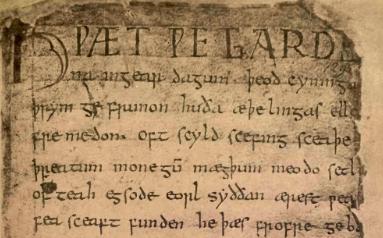 HǷÆT ǷE GARDE
na ingear dagum. þeod cyninga
þrym ge frunon huða æþelingas elle
fremedon. oft scyld scefing sceaþe
þreatum monegū mægþum meodo setl
of teah egsode eorl syððan ærest ƿea
fea sceaft funden he þæs frofre geba